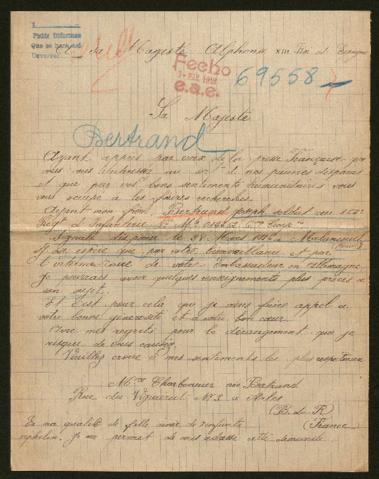 A sa Majesté Alphonse XIII Roi d'Espagne
Pedir Informes
Fecho
e.a.e.
69558
Sa Majesté
Bertrand
Ayant appris par voix de la presse Française que
vous vous intéressez au sort de nos pauvres disparus
et que par vos bons sentiments humanitaires vous
vous occupez à les faire rechercher.
Ayant mon frère Bertrand Joseph soldat au
Reg d'Infanterie
Signalé disparu le 28 Mars
par votre bienveillance et par
l'intermédiaire de votre Ambassadeur en Allemagne
Je pourrais avoir quelques renseignements plus précis à
son sujet.
Et c'est pour cela que je viens faire appel à
votre bonne générosité et à votre bon cœur
mes regrets pour le dérangement que je
risque de vous causer.
Veuillez croire à mes sentiments les plus respectueux
Mme Charbonnier née Bertrand
Rue du Vigueirat No 3 à Arles
(B. d. R)
(France
En ma qualité de fille
orpheline. Je me permet de vous adresser cette demande